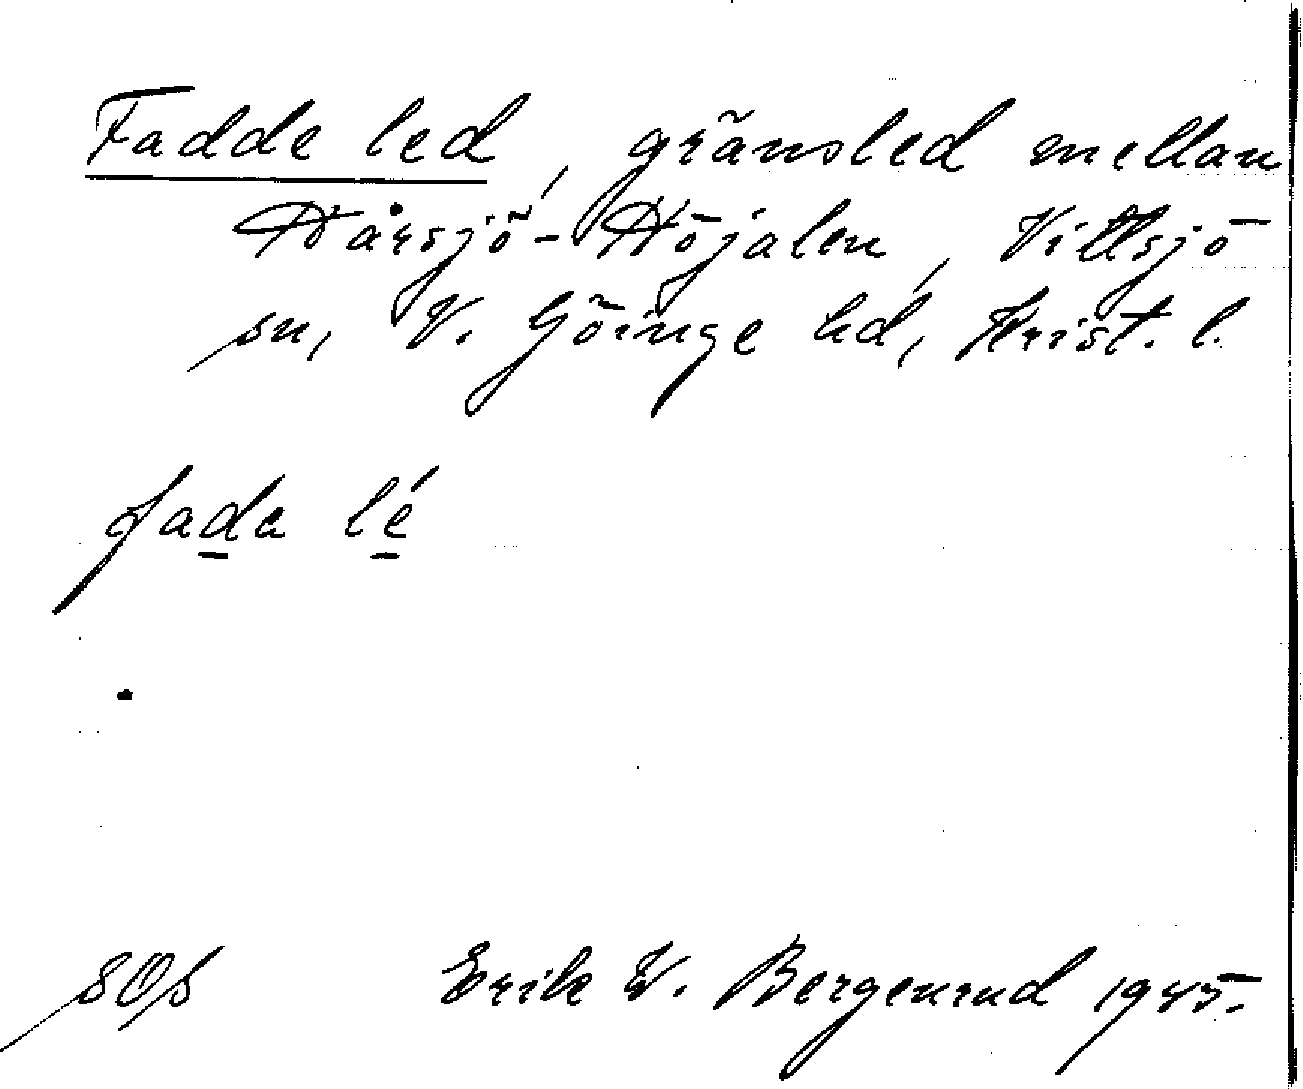 Fadde led, gränsled mellan
Hårsjö-Höjalen, Vittsjö
sn, V. Göinge hd, Krist. l.
fada lé
Erik W. Bergenrud 1945.